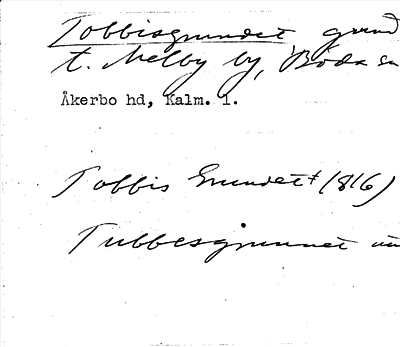 Tobbisgrundet grund
t. Melby by, Böda sn
Åkerbo hd, Kalm. l.
Tobbis Grundet (1816)
Tubbesgrunnet